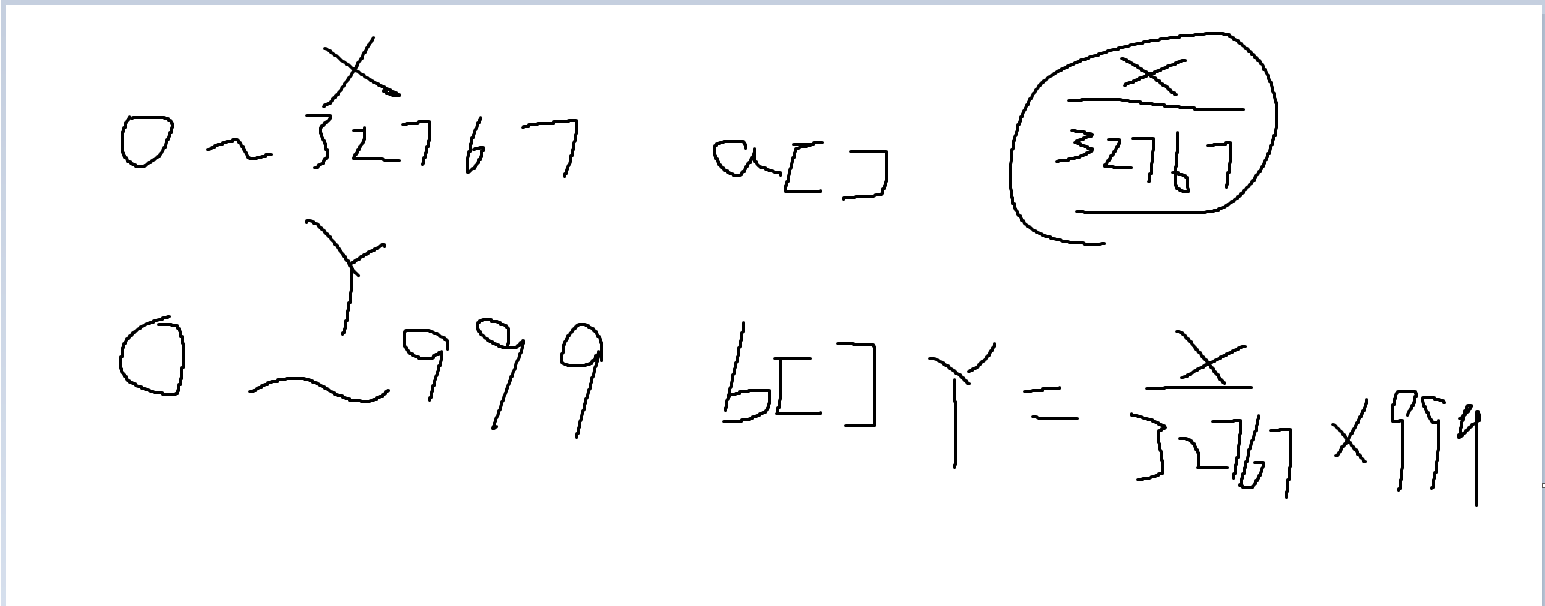 X
0 ~ 32767 a[] X
32767
Y
0 ~ 999 b[] Y = X
32767 × 999